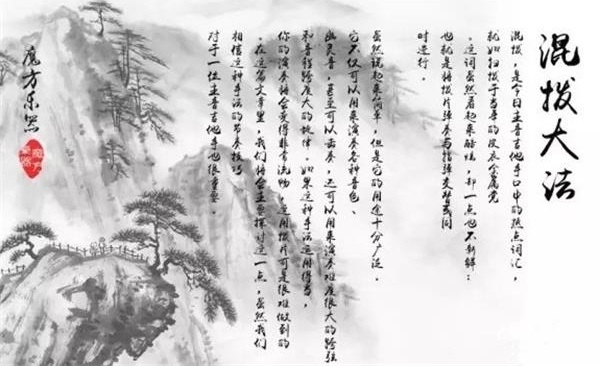 混拨大法
混拨,是今日主音吉他手口中的热点词汇,
就如扫拨于当年的皮衣金属党
,这词虽然看起来酷炫,却一点也不新鲜:
也就是将拨片弹奏与指弹交替或同
时进行。
虽然说起来简单,但是它的用途十分广泛。
它不仅可以用来演奏各种音色、
幽灵音,甚至可以击奏,还可以用来演奏难度很大的跨弦
和音程跨度大的旋律。如果这种手法运用得当,
你的演奏将会变得非常流畅,这用拨片可是很难做到的
。在这篇文章里,我们将会主要探讨这一点,虽然我们
相信这种手法的节奏技巧
对于一位主音吉他手也很重要。
魔方乐器